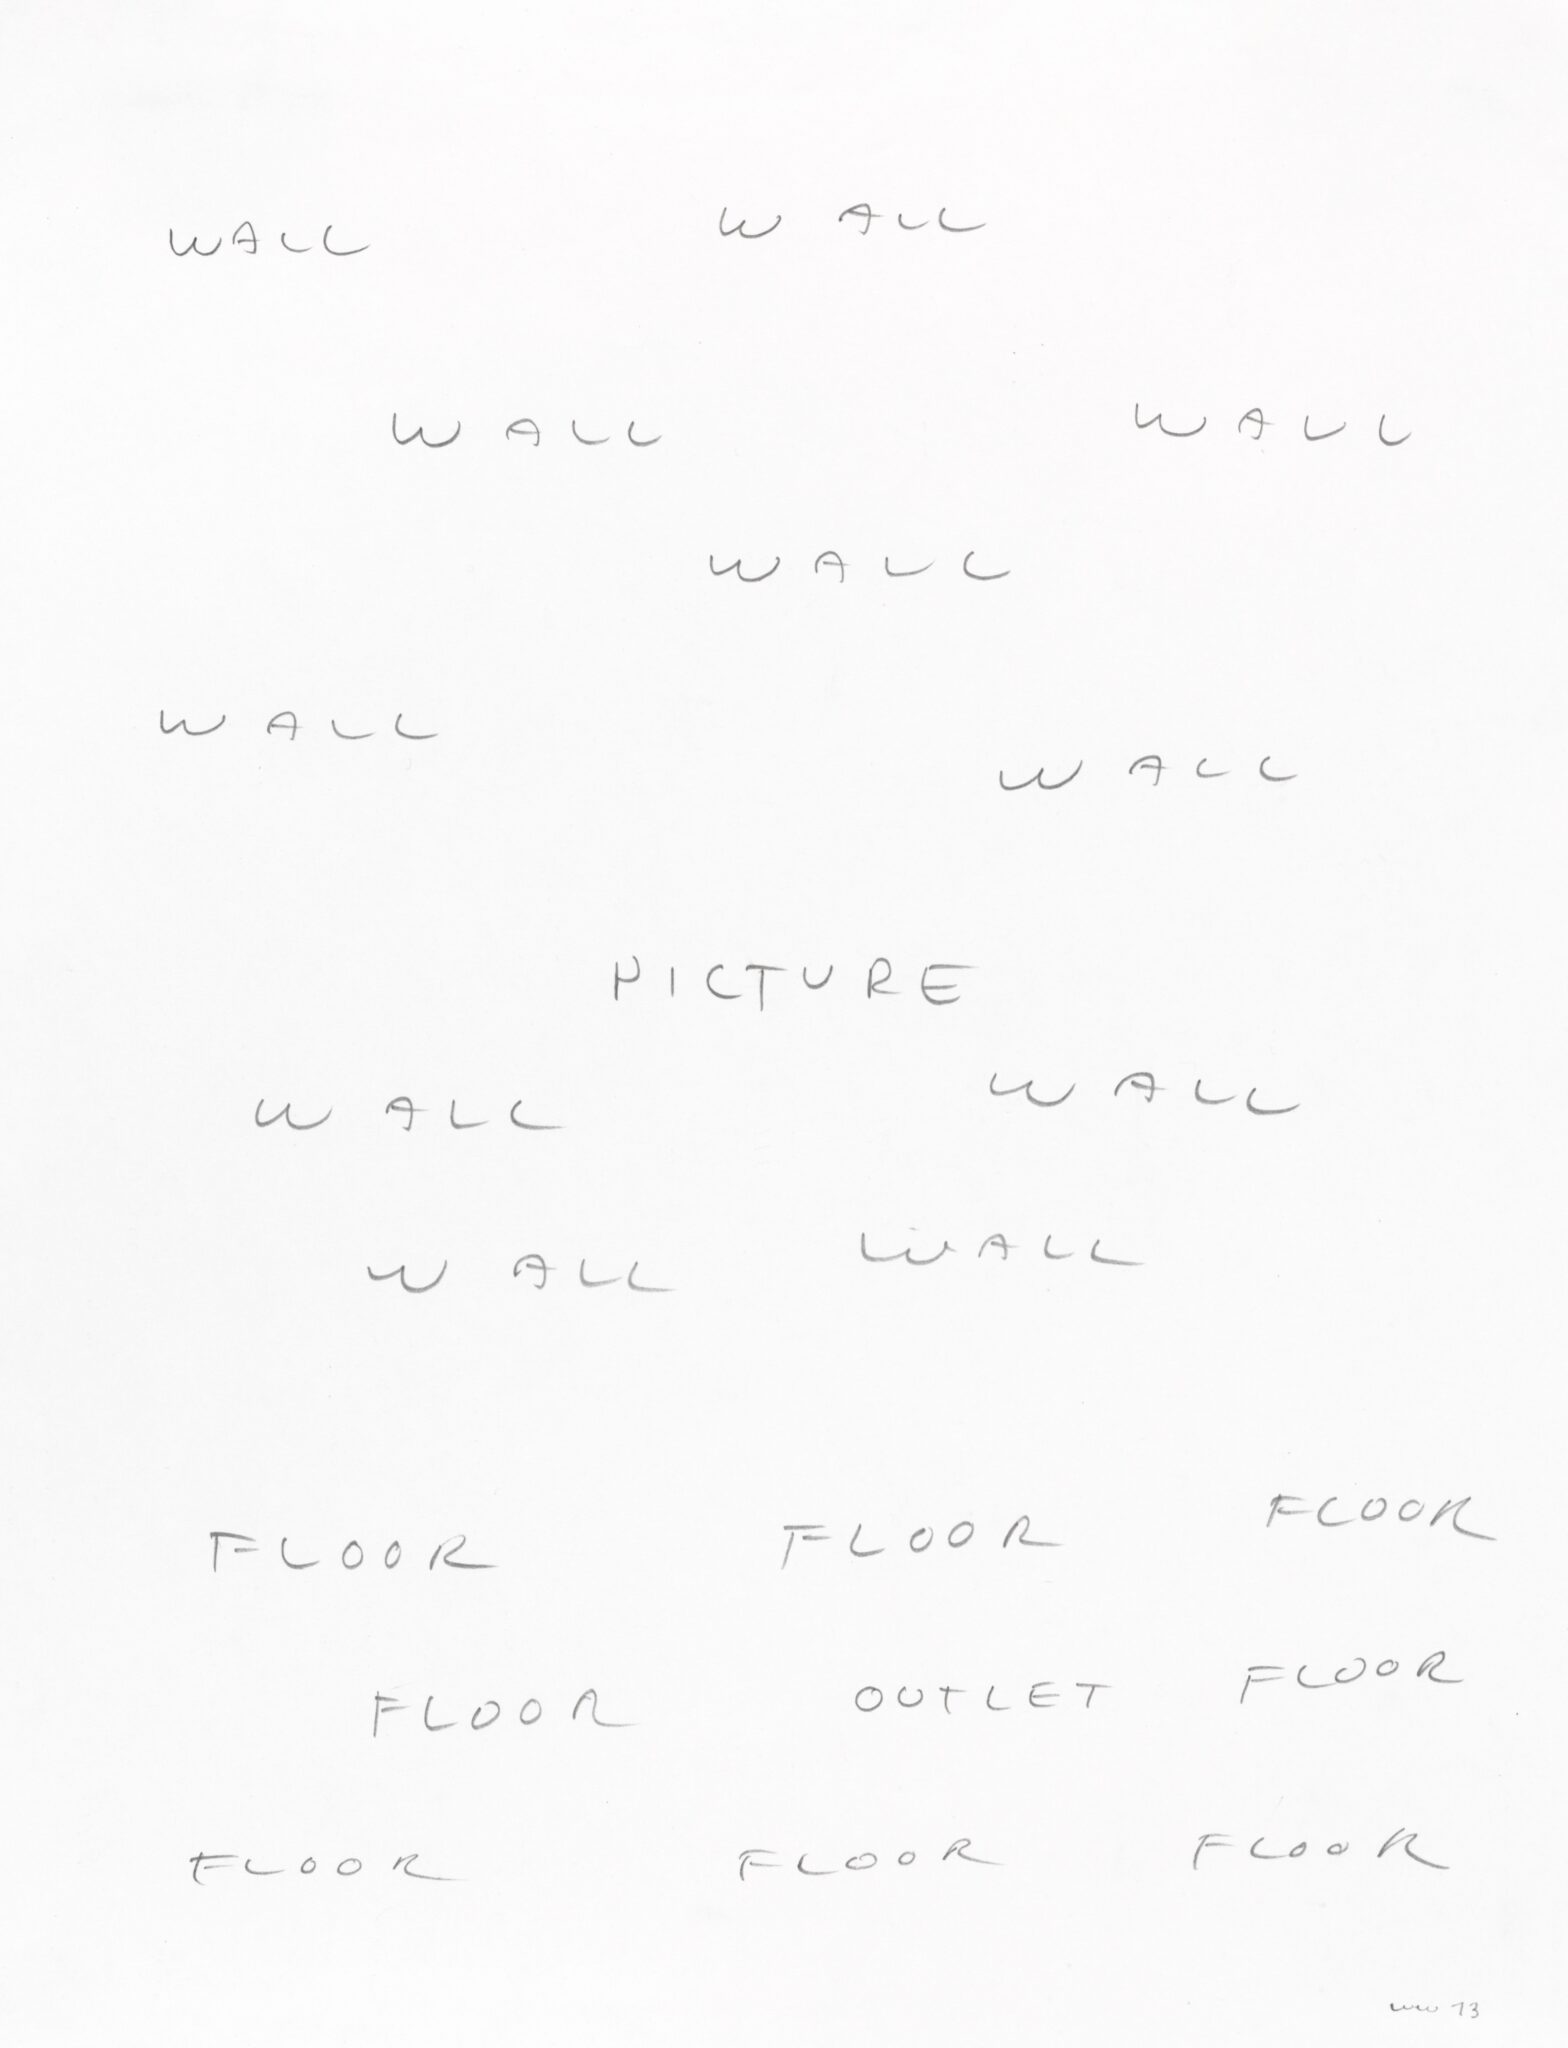 WALL WALL
WALL WALL
WALL
WALL WALL
PICTURE
WALL WALL
WALL WALL
FLOOR FLOOR FLOOR
FLOOR OUTLET FLOOR
FLOOR FLOOR FLOOR
ww 73